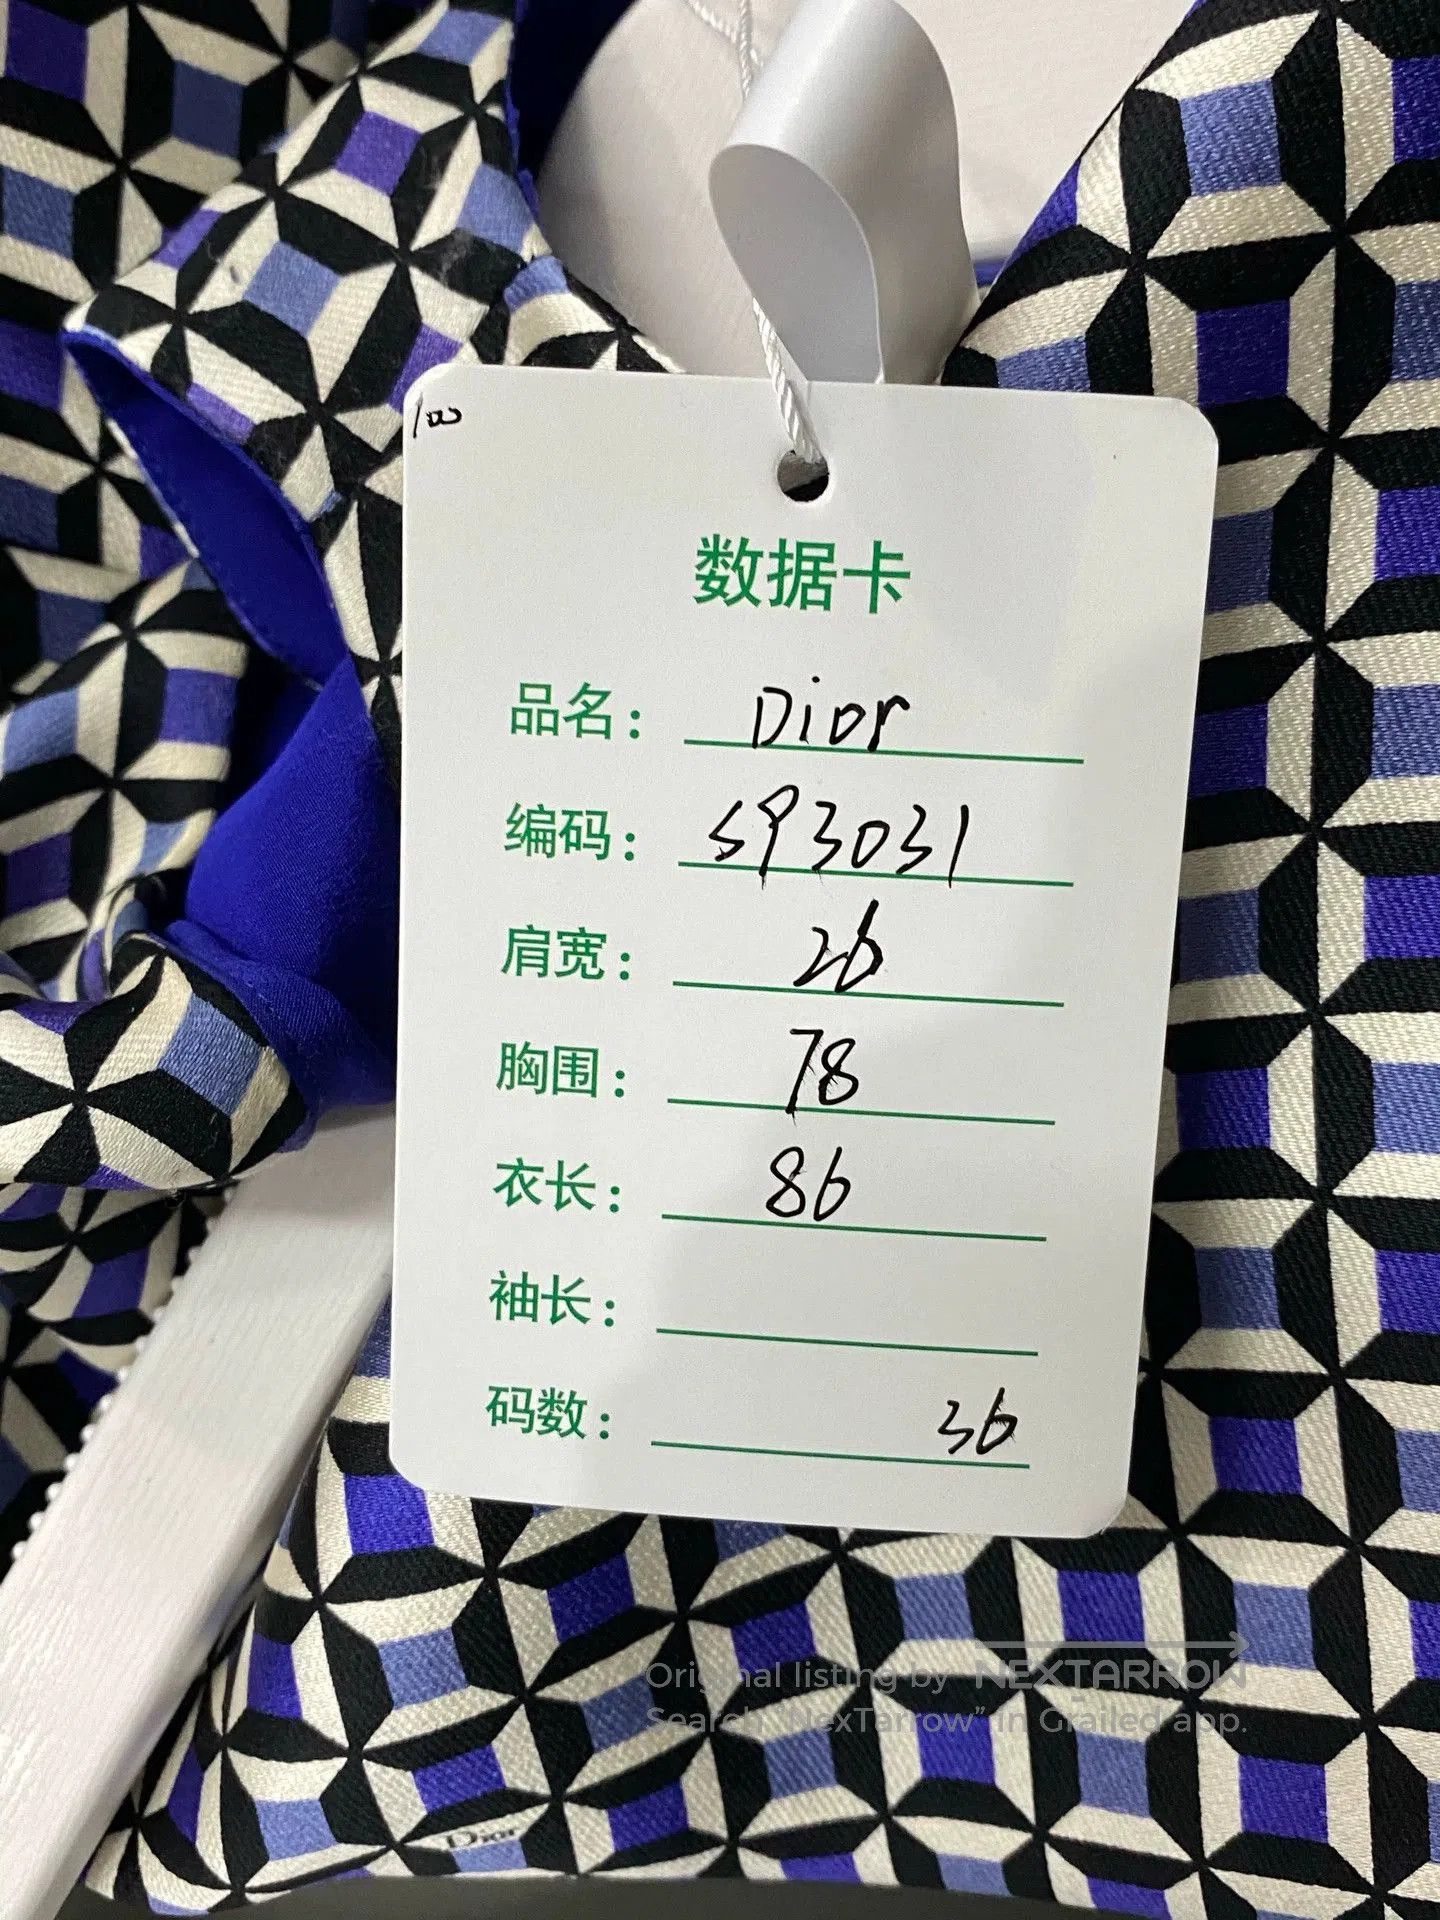 100
数据卡
品名: Dior
编码: S93031
肩宽: 26
胸围: 78
衣长: 86
袖长:
码数: 36
Original listing by NEXTARROW
Search "NexTarrow" in Grailed app.
Dior